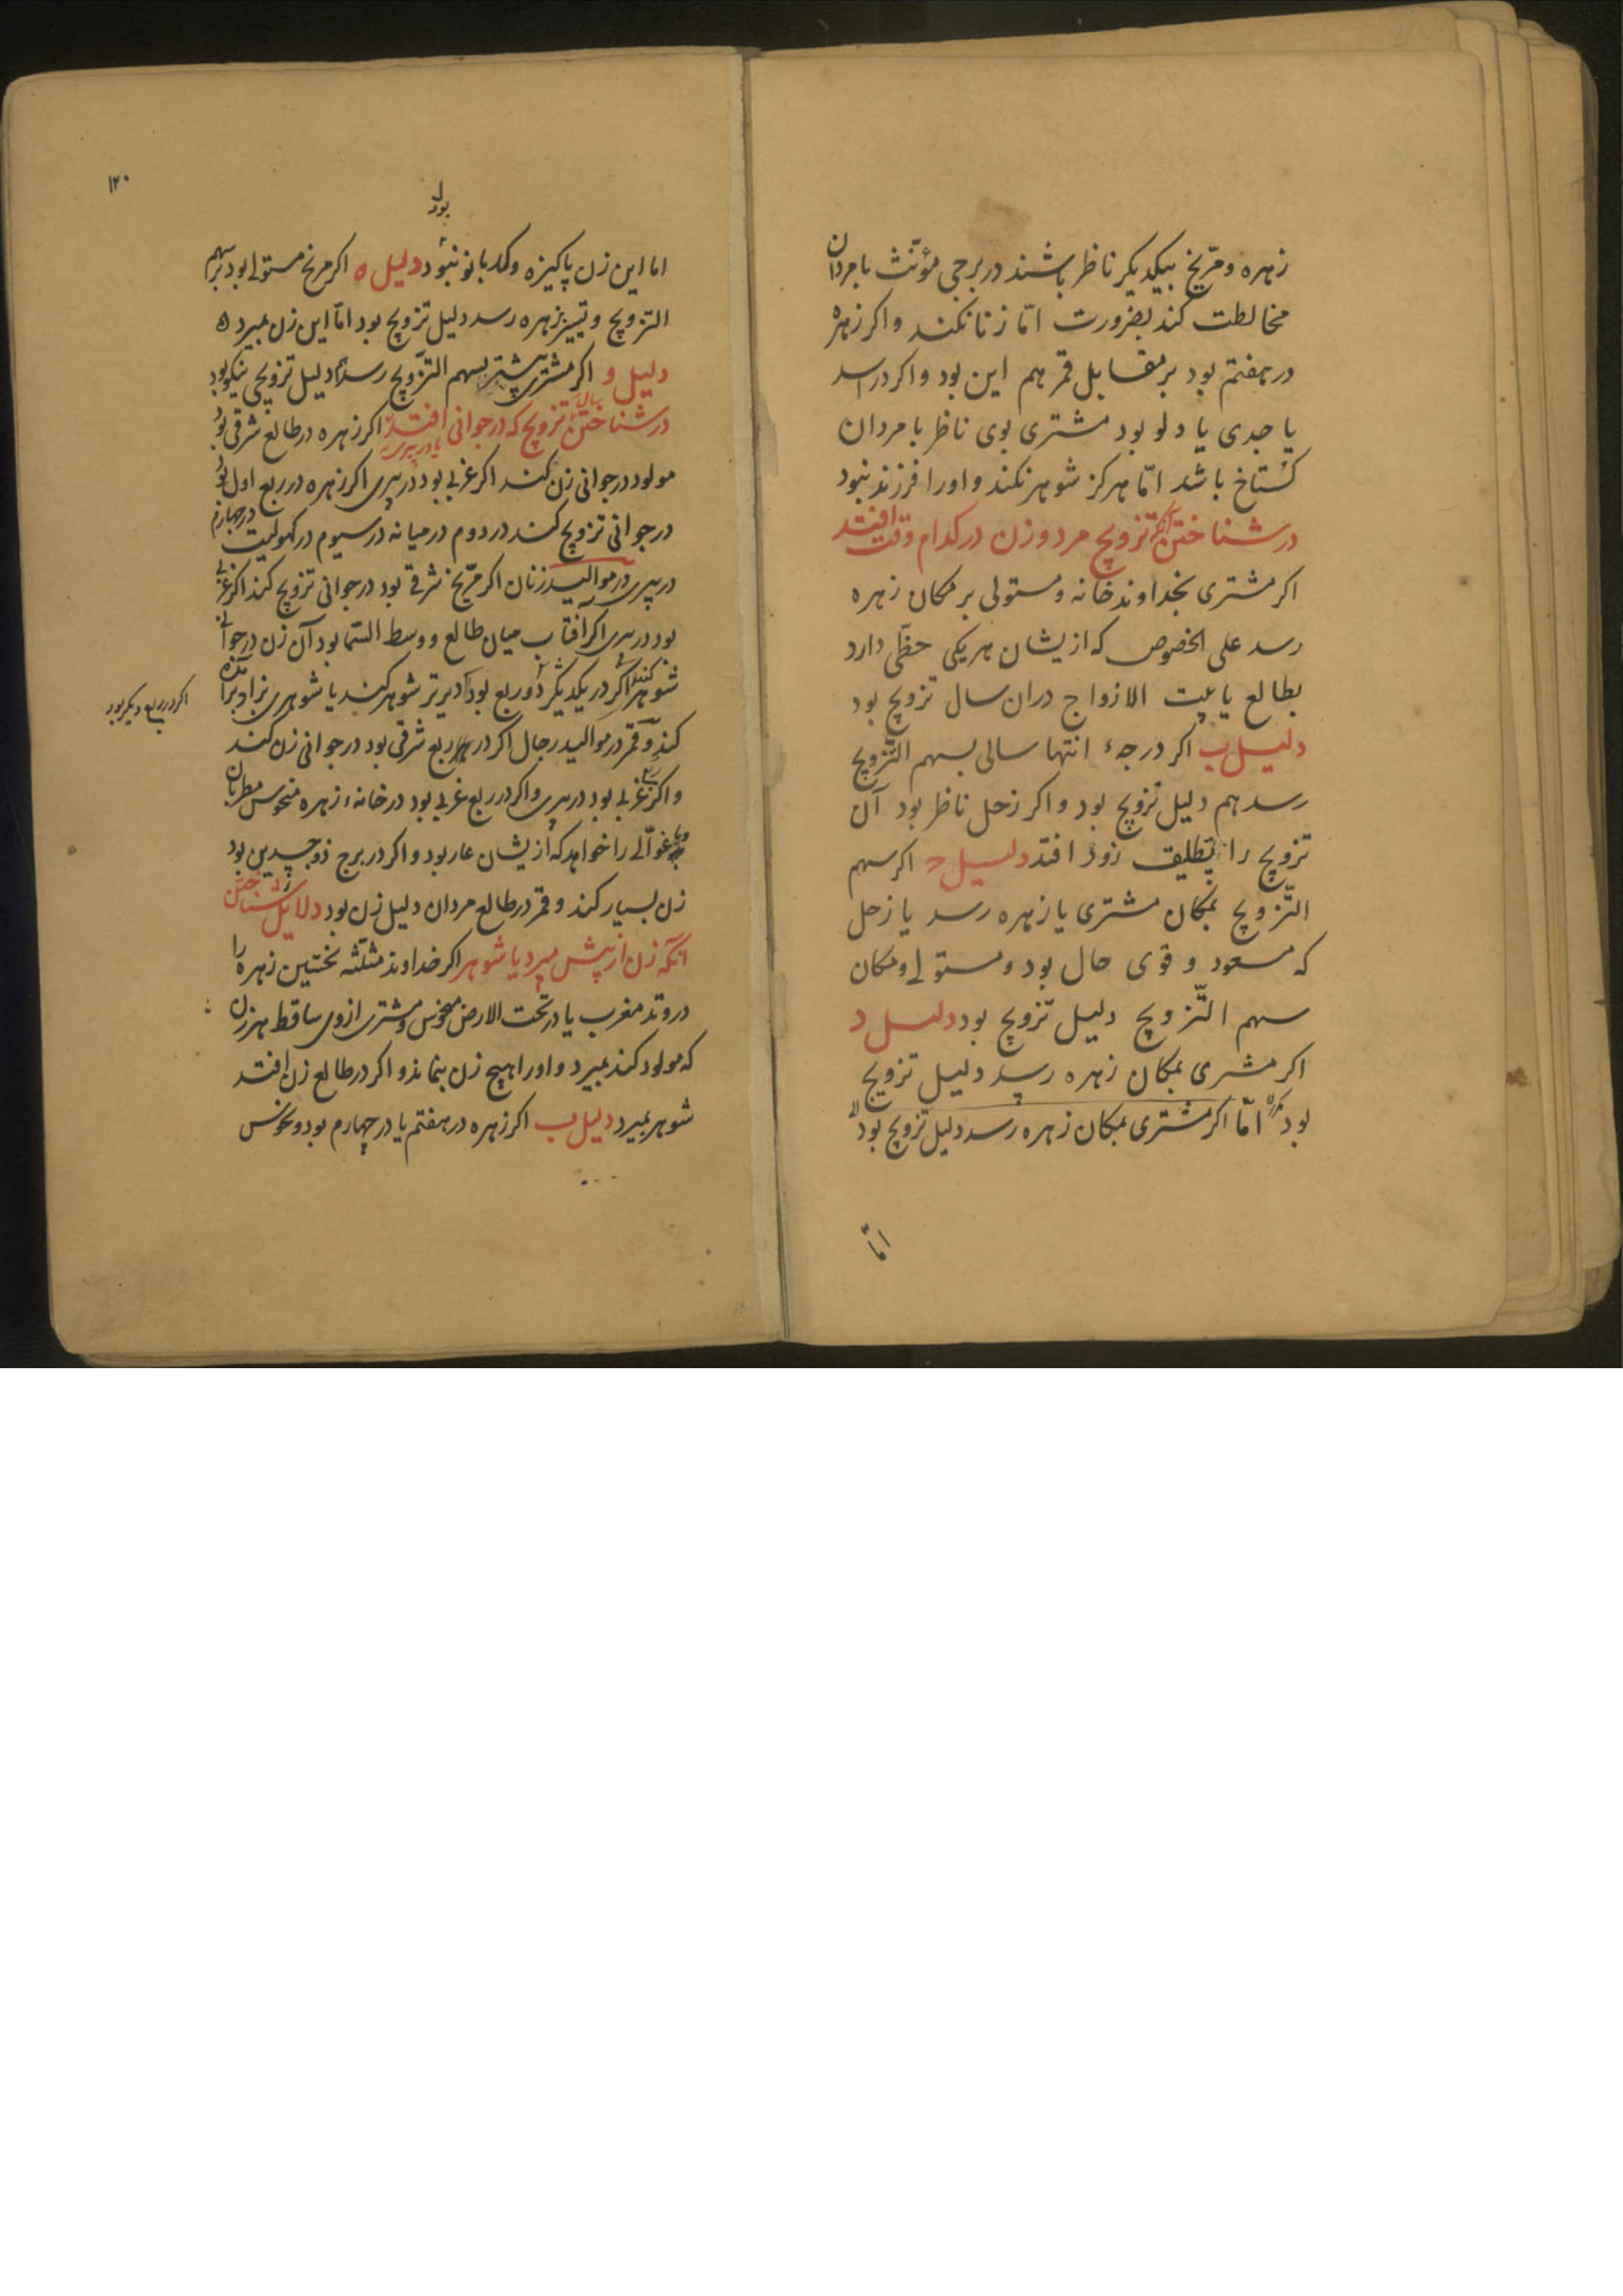 زهره و مریخ بیکدیکر ناظر باشند در برجی مؤنث با مردان
مخالطت کند بضرورت امّا زنا نکند و اکر زهره
در هفتم بود بر مقابل قمر هم این بود و اکر در اسد
یا جدی یا دلو بود مشتری بوی ناظر با مردان
کستاخ باشد امّا هرکز شوهر نکند و او را فرزند نبود
در شناختن آنکه تزویج مرد و زن در کدام وقت افتد
اکر مشتری بخداوند خانه و مستولی بر مکان زهره
رسد علی الخصوص که ازیشان هر یکی حظّی دارد
بطالع یا بیت الازواج در ان سال تزویج بود
دلیل ب اکر درجهٔ انتها سالی بسهم التّزویج
رسد هم دلیل تزویج بود و اکر زحل ناظر بود آن
تزویج را بتطلیق زود افتد دلیل ج اکر سهم
التّزویج بمکان مشتری یا زهره رسد یا زحل
که مسعود و قوی حال بود و مستولی و مکان
سهم التّزویج دلیل تزویج بود دلیل د
اکر مشتری بمکان زهره رسد دلیل تزویج
بود امّا اکر مشتری بمکان زهره رسد دلیل تزویج بود
امّا
۱۲۰
بود
اما این زن پاکیزه و کدبانو نبود دلیل ه اکر مریخ مستولی بود بر سهم
التزویج و تسییر بزهره رسد دلیل تزویج بود امّا این زن بمیرد
دلیل و اکر مشتری بسهم التّزویج رسد دلیل تزویجی نیکو بود
در شناختن تزویج که در جوانی افتد یا در پیری اکر زهره در طالع شرقی بود
مولود در جوانی زن کند اکر غربی بود در پیری اکر زهره در ربع اول بود
در جوانی تزویج کند در دوم در میانه در سیوم در کهولیت در چهارم
در پیری در موالید زنان اکر مرّیخ شرقی بود در جوانی تزویج کند اکر غربی
بود در پیری اکر آفتاب میان طالع و وسط السّما بود آن زن در جوانی
شوهر کند اکر در یکدیکر دو ربع بود دیرتر شوهر کند یا شوهری بزاد برآمده
اکر در ربع دیکر بود
کند و قمر در موالید رجال اکر در ربع شرقی بود در جوانی زن کند
و اکر غربی بود در پیری و اکر در ربع غربی بود در خانهٔ زهره منحوس مطربان
را خواهد که ازیشان عار بود و اکر در برج ذو جسدین بود
زن بسیار کند و قمر در طالع مردان دلیل زن بود دلایل شناختن
آنکه زن از پیش میرد یا شوهر اکر خداوند مثلّثه نخستین زهره را
در وتد مغرب یا در تحت الارض منحوس و مشتری از وی ساقط هر زن
که مولود کند بمیرد و او را هیچ زن بنماند و اکر در طالع زن افتد
شوهر بمیرد دلیل ب اکر زهره در هفتم یا در چهارم بود و نحوس